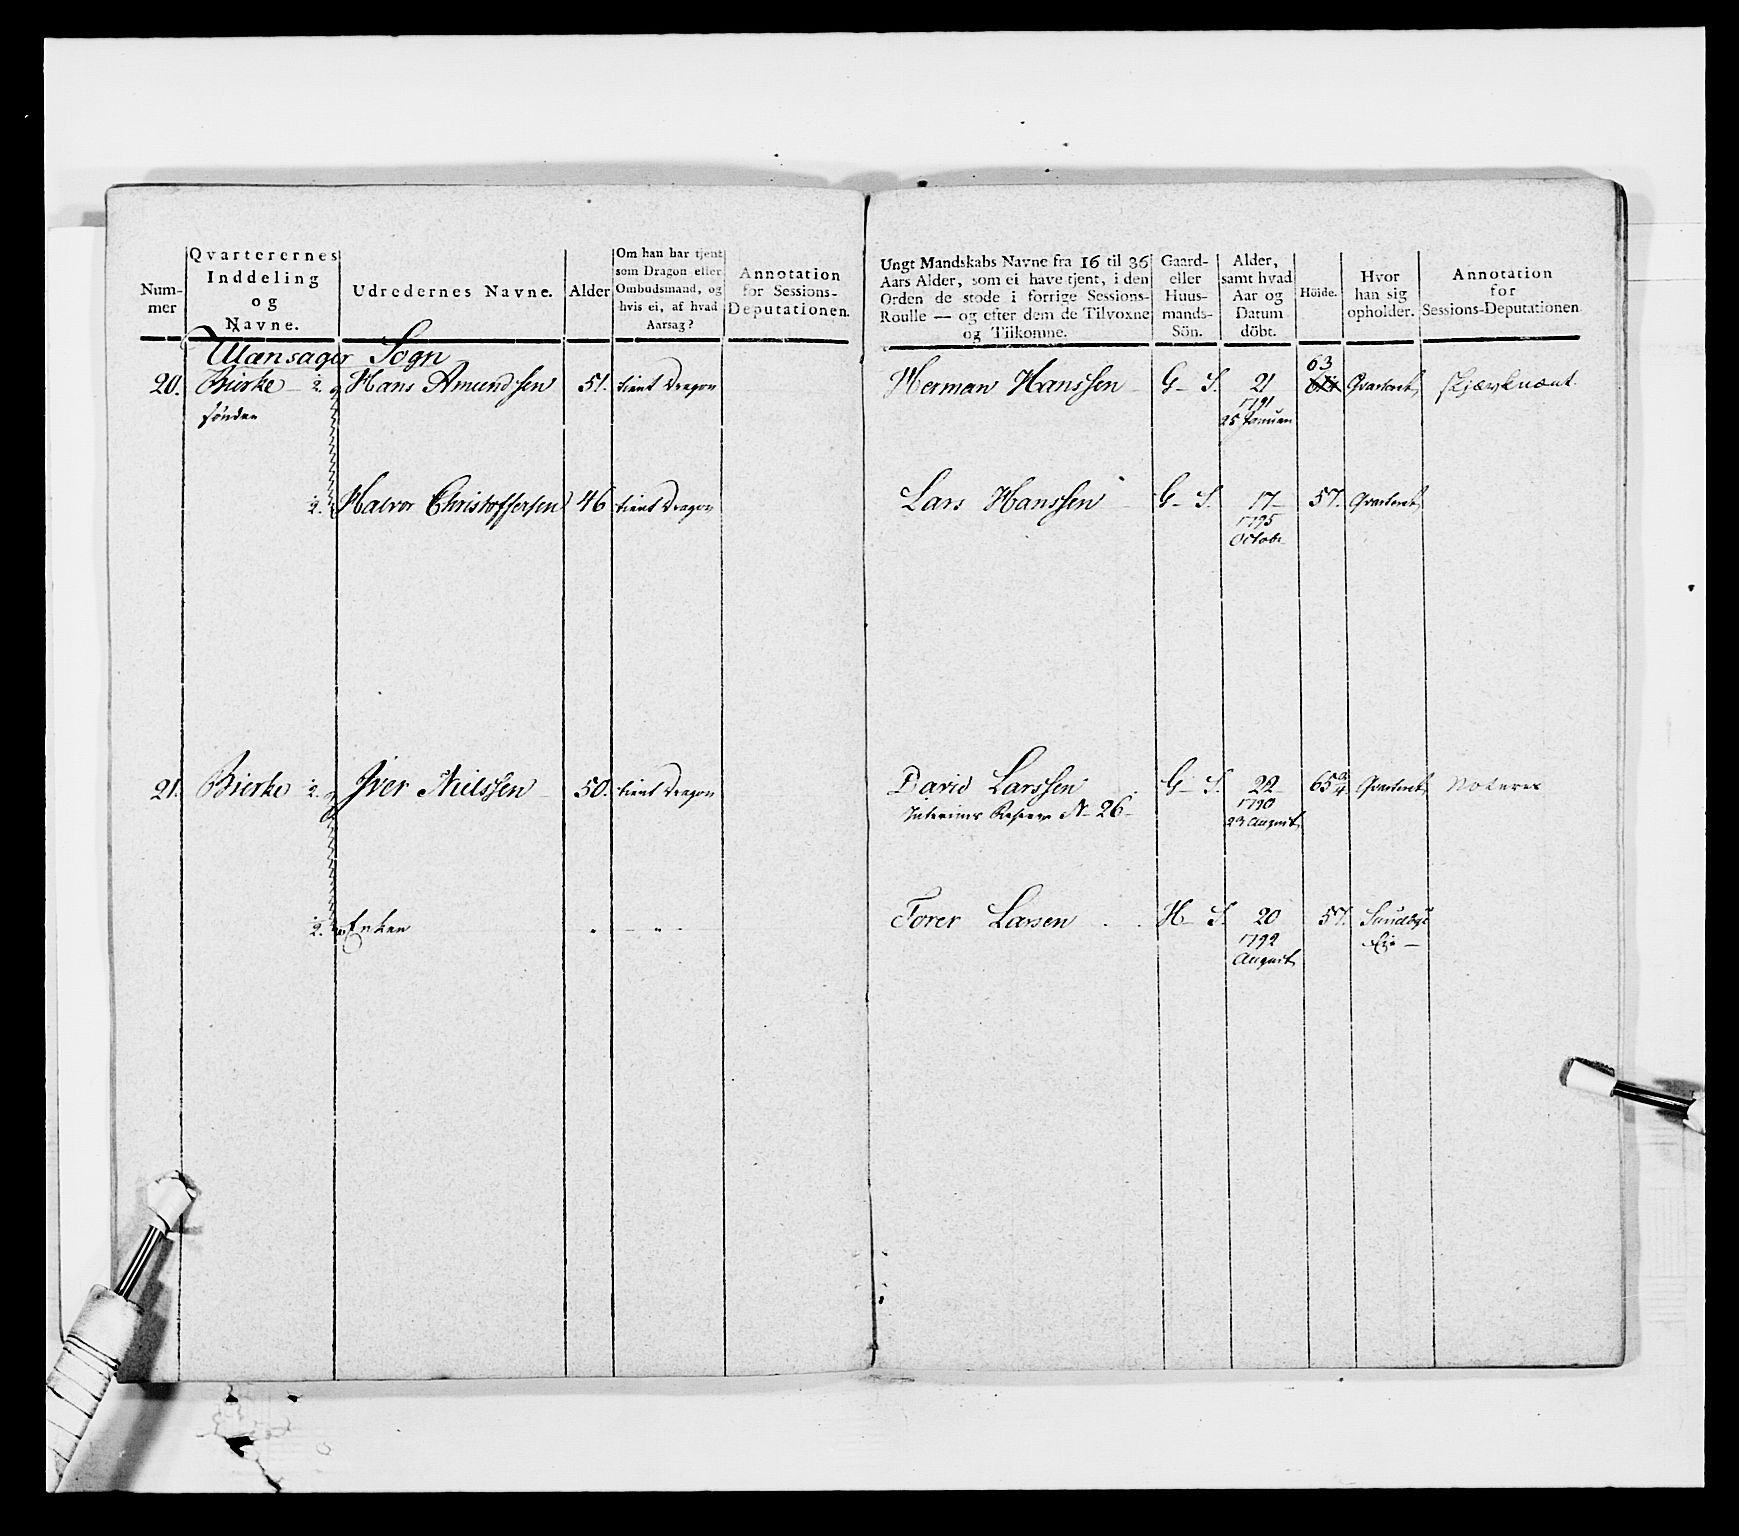 Nummer
Qvarterernes Inddeling og Navne.
Udredernes Navne.
Alder
Om han har tjent som Dragon eller Ombudsmand, og hvis ei, af hvad Aarsag?
Annotation for Sessions-Deputationen.
Ungt Mandskabs Navne fra 16 til 36
Aars Alder, som ei have tjent, i den
Orden de stode i forrige Sessions-
Roulle — og efter dem de Tilvoxne
og Tilkomne.
Gaard- eller Huusmands-Sön.
Alder, samt hvad Aar og Datum döbt.
Höide.
Hvor han sig opholder.
Annotation for Sessions-Deputationen
Ulænsager Sogn
20. Bierke 2. Hans Amundsen 51. tient Dragon
søndre
Herman Hanssen G - S. 21 63 Qvarteret
1791
25 Januari
2. Halvor Christoffersen 46 tient Dragon
Lars Hanssen G - S. 17 57. Qvarteret
1795
Octobr
21. Bierke 2. Iver Nielssen 50. tient Dragon
David Larssen G - S. 22 65 3/4 Qvarteret Noteres
Interims Reserv N 26 1790
23 August
2. Enken " — " —
Torer Larsen H - S. 20 57. Sundbye
1792 Eie —
August